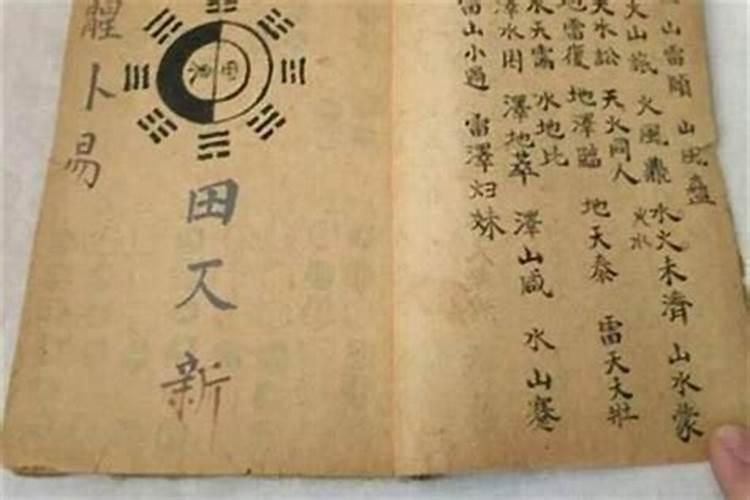 山雷頤
山風蠱
火山旅
火風鼎
火水
水火未濟
山水蒙
天水訟
天火同人
地雷復
地澤臨
地天泰
雷天天壯
水天需
水地比
澤水困
澤地萃
澤山咸
水山蹇
雷山小過
雷澤归妹
田又新
卜易